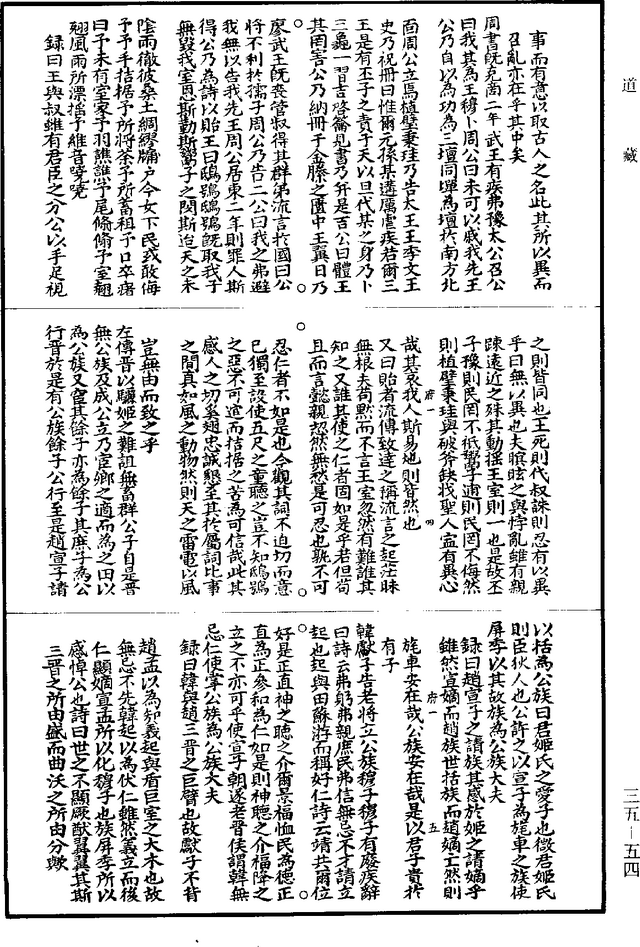 道藏
事而有意以取古人之名此其所以異而
召亂亦在乎其中矣
周書既克商二年武王有疾弗豫太公召公
曰我其為王穆卜周公曰未可以戚我先王
公乃自以為功為三壇同墠為壇於南方北
面周公立焉植璧秉珪乃告太王王季文王
史乃祝冊曰惟元孫某遘厲虐疾若爾三
王是有丕子之責于天以旦代某之身乃卜
三龜一習吉啓籥見書乃并是吉公曰體王
其罔害公乃納冊于金縢之匱中王翼日乃
廖武王既喪管叔得其群弟流言於國曰公
將不利於孺子周公乃告二公曰我之弗避
我無以告我先王周公居東二年則罪人斯
得公乃為詩以貽王曰鴟鴞鴟鴞既取我子
無毀我室恩斯勤斯鬻子之閔斯迨天之未
陰雨徹彼桑土綢繆牖户今女下民或敢侮
予予手拮据予所捋荼予所蓄租予口卒瘏
曰予未有室家予羽譙譙予尾翛翛予室翹
翹風雨所漂搖予維音嘵嘵
録曰王與叔雖有君臣之分公以手足視
之則皆同也王死則代叔誅則忍有以異
乎曰無以異也夫瞑眩之與悖亂雖有親
踈遠近之殊其動揺王室則一也是故丕
子豫則民罔不祇鬻子逋則民罔不悔然
則植璧秉珪與破斧缺戕聖人寍有異心
哉其哀我人斯易地則皆然也
又曰貽者流傳致達之稱流言之起茫昧
無根夫苟黙而不言王室忽然有難誰其
知之又誰其使之仁者固如是乎若但尚
且而言懿親恝然無然是可忍也孰不可
忍仁者不如是也今觀其詞不迫切而意
已獨至設使五尺之童聽之豈不知鴟鴞
之惡不可道而拮据之苦為可信哉此其
感人之切奚翅忠誠懇至其於屬詞比事
之間真如風之動物然則天之雷電以風
豈無由而致之乎
左傳晉以驪姬之難詛無畜群公子自是晉
無公族及成公立乃宦卿之適而為之田以
為公族又宦其餘子亦為餘子其庶子為公
行晉於是有公族餘子公行至是趙宣子請
以括為公族曰君姬氏之愛子也微君姬氏
則臣狄人也公許之以宣子為旄車之族使
屏季以其故族為公族大夫
録曰趙宣子之請族其感於姬之請嫡乎
雖然宣嫡而趙族世括族而趙嫡亡然則
旄車安在哉公族安在哉是以君子貴於
有子
韓獻子告老將立公族穆子穆子有廢疾辭
曰詩云弗躬弗親庶民弗信無忌不才請立
起也起與田蘇游而稱好仁詩云靖共爾位
好是正直神之聽之介爾景福恤民為德正
直為正參和為仁如是則神聽之介福降之
立之不亦可乎使宣子朝遂老晉侯謂韓無
忌仁使掌公族為公族大夫
録曰韓與趙三晉之巨臂也故獻子不背
趙孟以為知義起與盾巨室之大木也故
無忌不先韓起以為伏仁雖然義立而後
仁顯嫡宣孟所以化穆子也族屏季所以
感悼公也詩曰世之不顯厥猷翼翼其斯
三晉之所由盛而曲沃之所由分歟
府一
四
府一
五
三五—五四